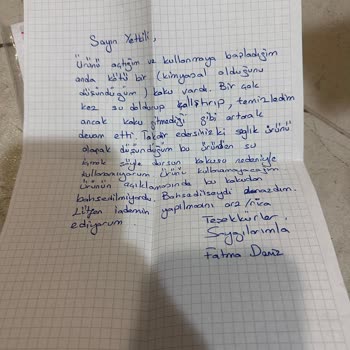 Sayın Yetkili,
Ürünü açtığım ve kullanmaya başladığım
anda kötü bir (kimyasal olduğunu
düşündüğüm) koku vardı. Bir çok
kez su doldurup çalıştırıp, temizledim
ancak koku gitmediği gibi artarak
devam etti. Takdir edersiniz ki sağlık ürünü
olarak düşündüğüm bu üründen su
içmek şöyle dursun kokusu nedeniyle
kullanamıyorum ürünü kullanamayacağım
Ürünün açıklamasında bu kokudan
bahsedilmiyordu. Bahsedilseydi almazdım.
Lütfen iademin yapılmasını arz/rica
ediyorum
Teşekkürler,
Saygılarımla
Fatma Deniz